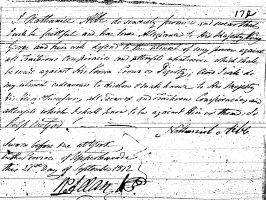 172
I Nathaniel Ribble do sincerely promise and swear that
I will be faithful and bear true allegiance to His Majesty King
George and him will defend to the utmost of my power against
all traitorous conspiracies and attempts whatsoever which shall
be made against his Person Crown or Dignity, and I will do
my utmost endeavour to disclose & make known to His Majesty
His Heirs & Successors, all Treasons and traitorous Conspiracies and
attempts which I shall know to be against Him or them, So
help me God
Nathaniel
Sworn before me at York
in the Province of Upper Canada
this 28th day of September 1812